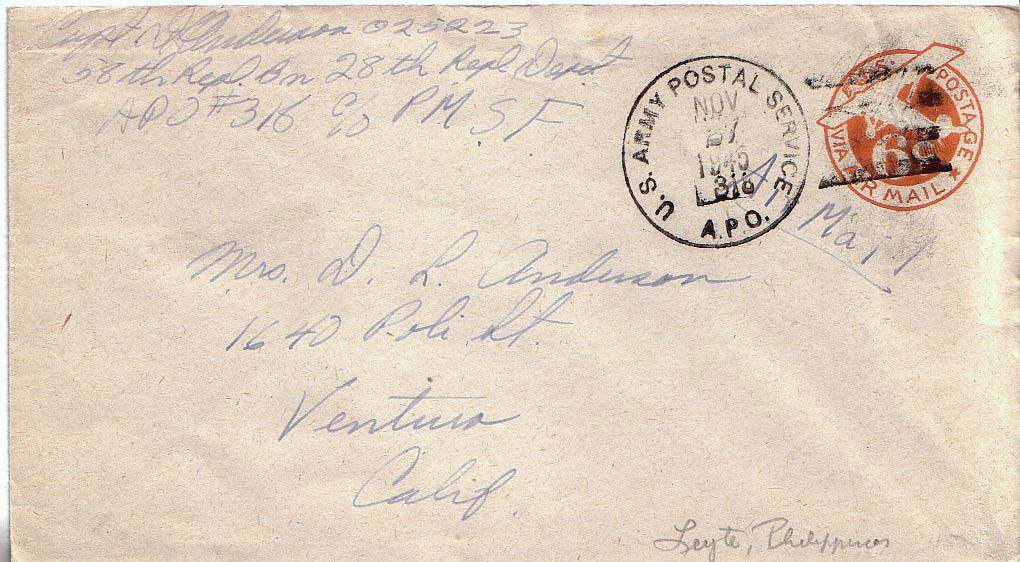 Capt D L Anderson 025223
58th Repl. Bn 28th Repl Depot
APO # 316 c/o P M S F
U.S. ARMY POSTAL SERVICE
NOV
27
1945
316
A.P.O.
U.S. POSTAGE
6¢
VIA AIR MAIL
Air Mail
Mrs. D. L. Anderson
1640 Poli St.
Ventura
Calif.
Leyte, Philippines